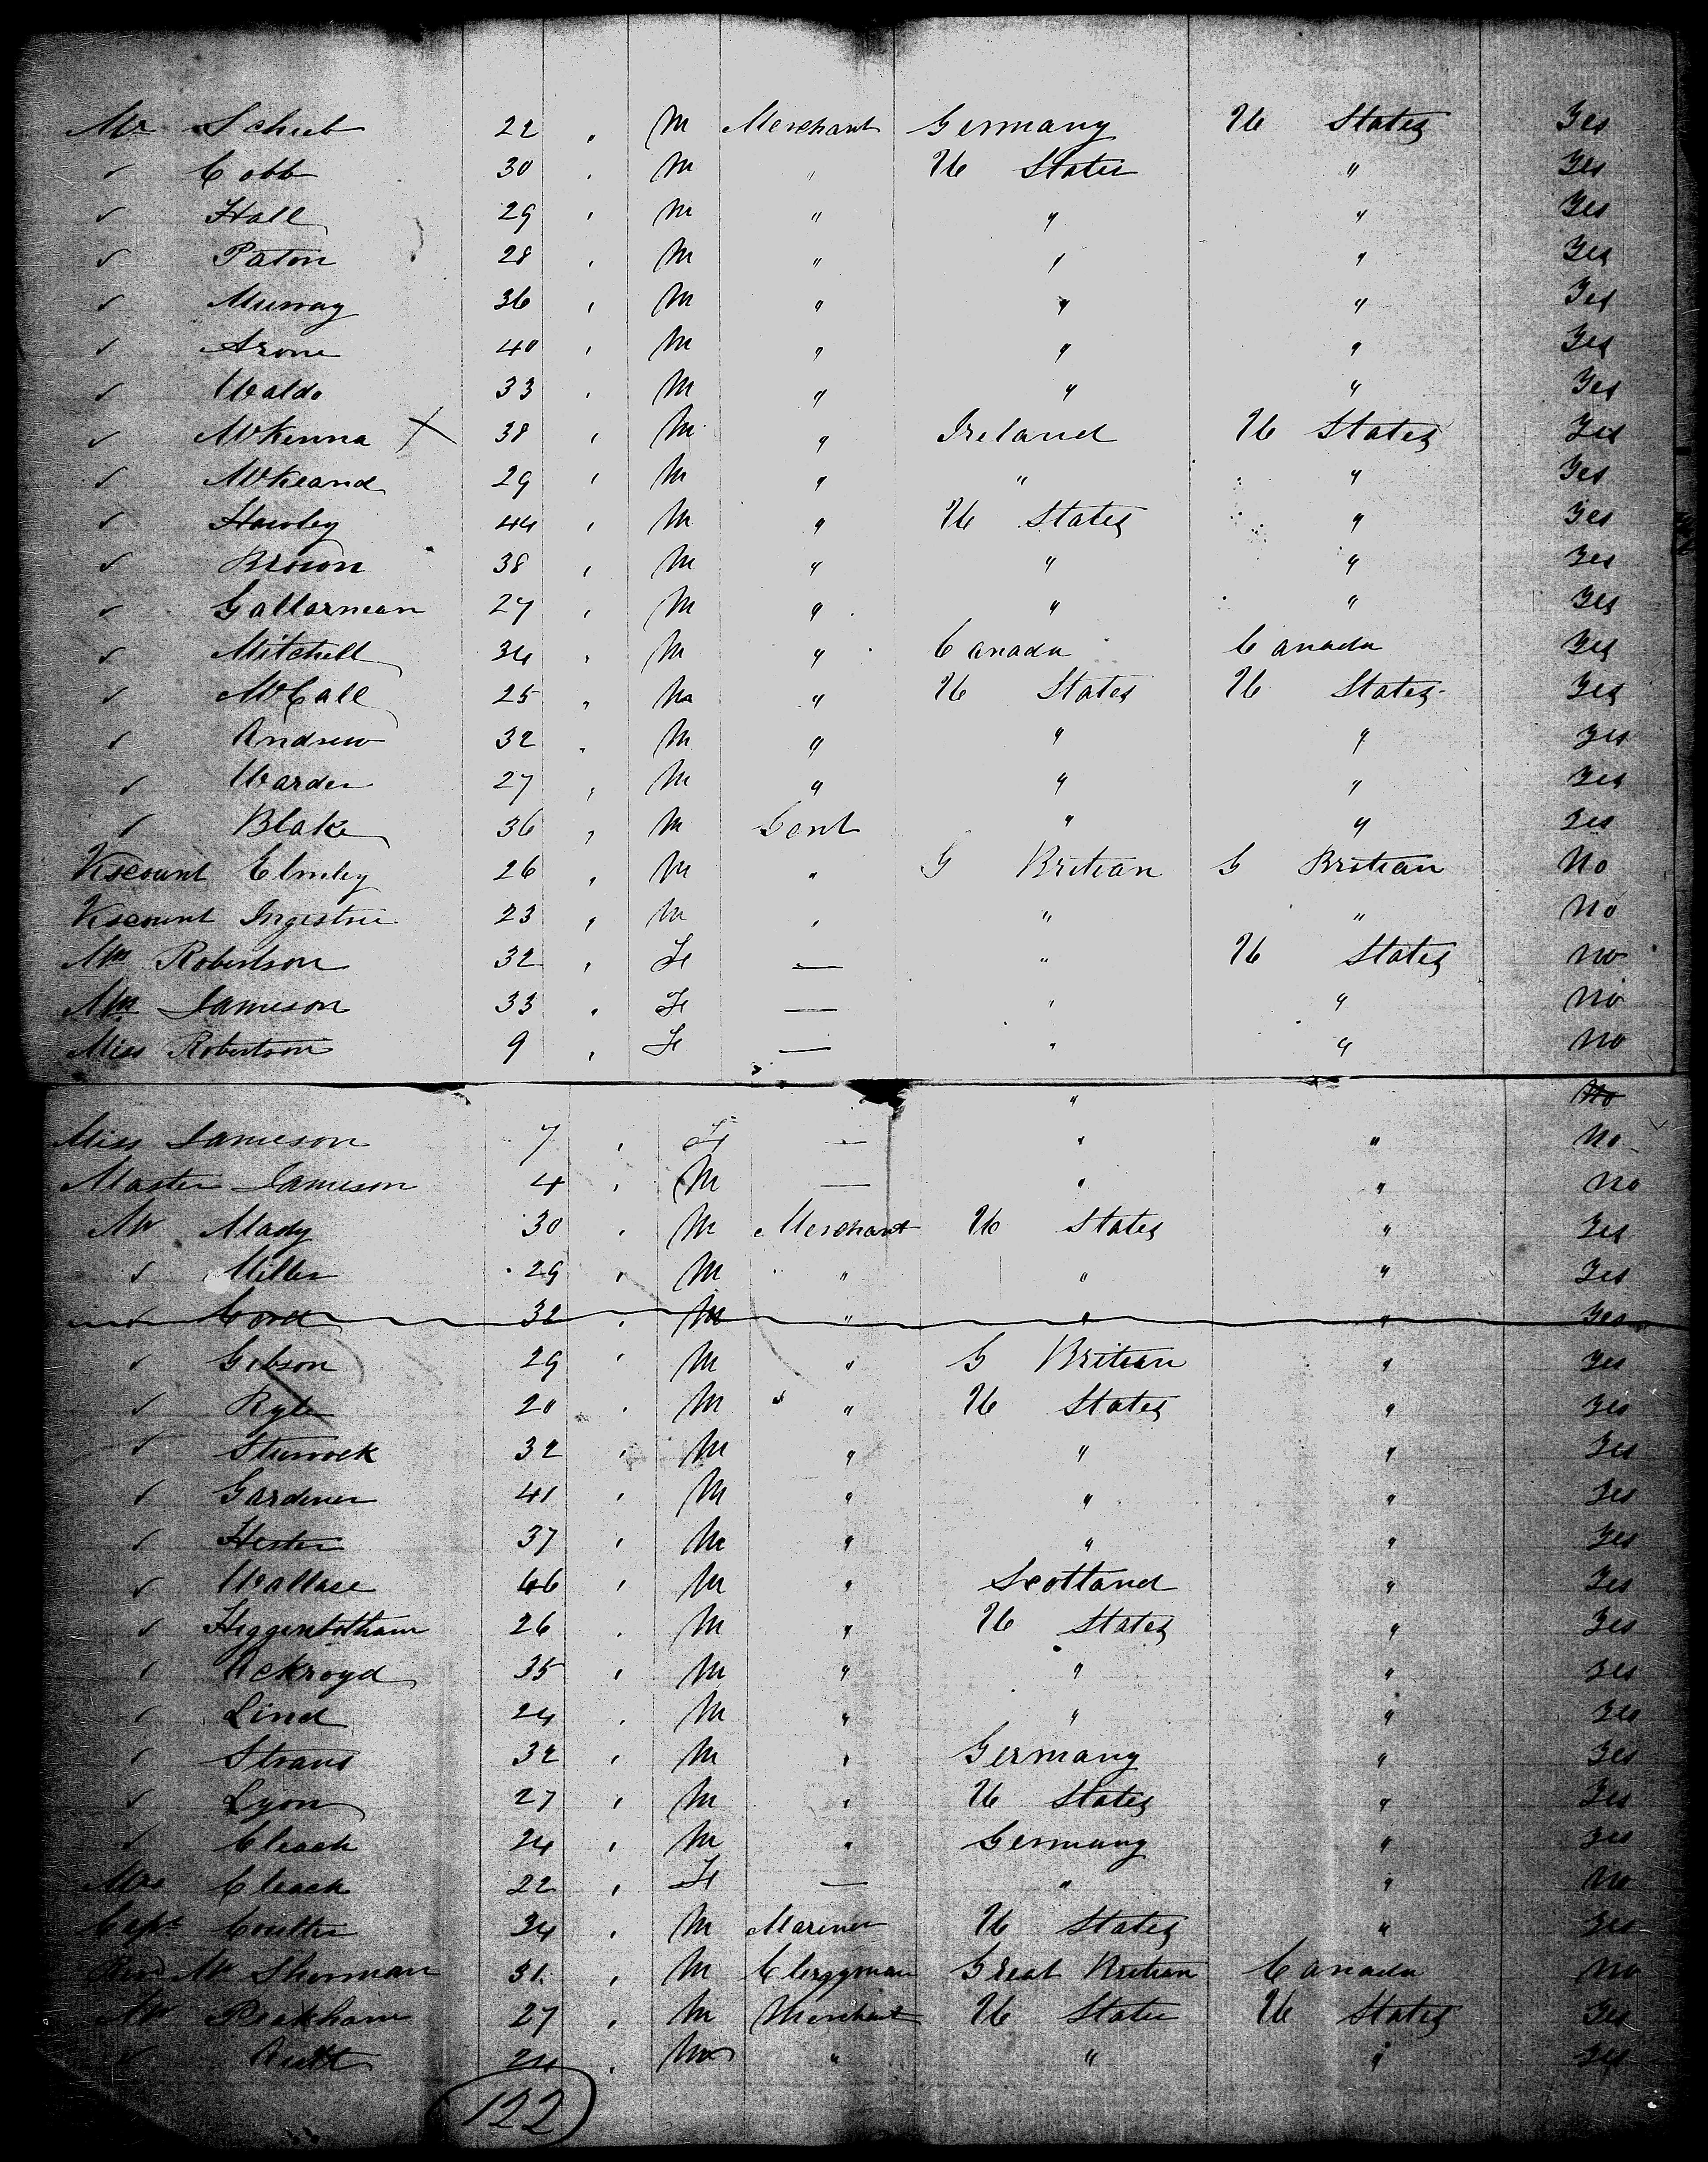 Mr Scheib 22 , M Merchant Germany U States Yes
" Cobb 30 , M " U States " Yes
" Hall 29 , M " " " Yes
" Paton 28 , M " " " Yes
" Murray 36 , M " " " Yes
" Arone 40 , M " " " Yes
" Waldo 33 , M " " " Yes
" McKenna X 38 , M " Ireland U States Yes
" McKeand 29 , M " " " Yes
" Hawley 44 , M " U States " Yes
" Brown 38 , M " " " Yes
" Gallarnean 27 , M " " " Yes
" Mitchell 34 , M " Canada Canada Yes
" McCall 25 , M " U States U States Yes
" Andrew 32 , M " " " Yes
" Warden 27 , M " " " Yes
" Blake 36 , M Gent " " Yes
Viscount Elmley 26 , M " G Britian G Britian No
Viscount Ingestrie 23 , M " " " No
Mrs Robertson 32 , F — " U States No
Mrs Jameson 33 , F — " " No
Miss Robertson 9 , F — " " No
" No
Miss Jameson 7 , F — " " No
Master Jameson 4 , M — " " No
Mr Mady 30 , M Merchant U States " Yes
" Miller 29 , M " " " Yes
" 32 , M " " " Yes
" Gibson 29 , M " G Britian " Yes
" Ryle 20 , M " U States " Yes
" Sturrock 32 , M " " " Yes
" Gardener 41 , M " " " Yes
" Hester 37 , M " " " Yes
" Wallace 46 , M " Scotland " Yes
" Higgenbotham 26 , M " U States " Yes
" Ackroyd 35 , M " " " Yes
" Lind 24 , M " " " Yes
" Straus 32 , M " Germany " Yes
" Lyon 27 , M " U States " Yes
" Cleach 24 , M " Germany " Yes
Mrs Cleach 22 , F — " " No
Capt Coulter 34 , M Mariner U States " Yes
Revd Mr Sherman 31 , M Clergyman Great Britian Canada No
Mr Peakham 27 , M Merchant U States U States Yes
" 24 , M " " " Yes
122